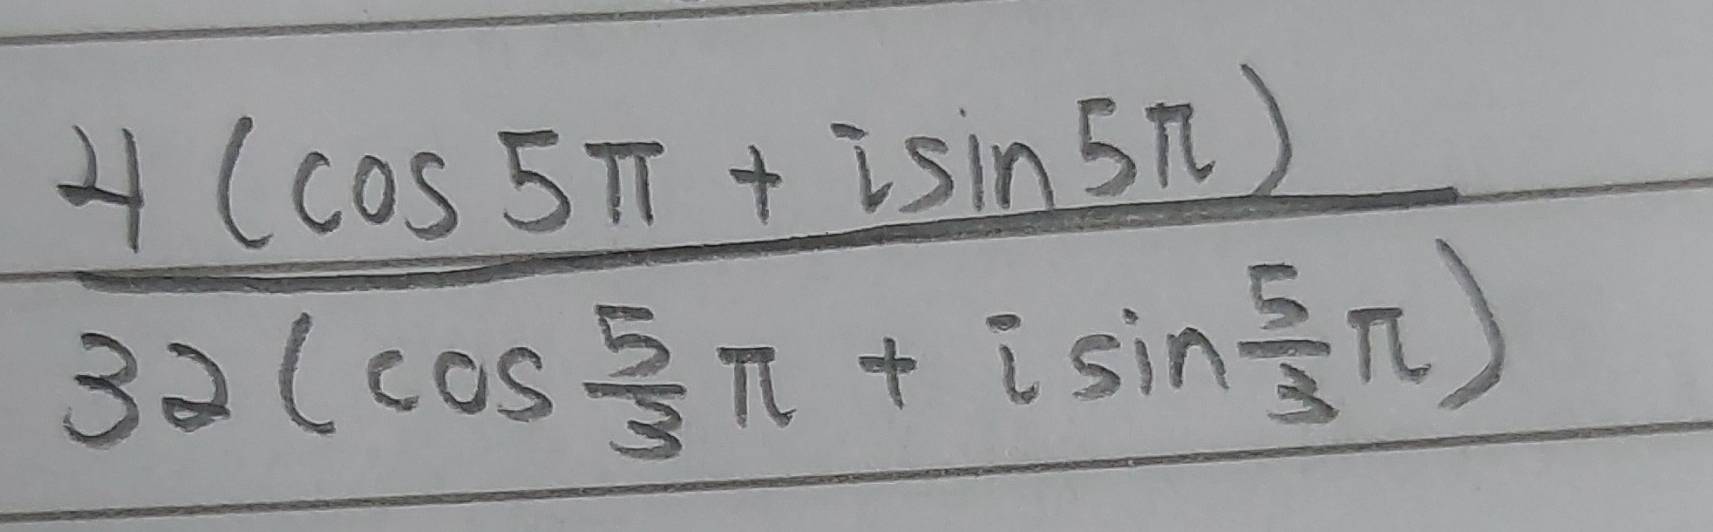 4 (cos 5π + i sin 5π)
32 (cos 5/3 π + i sin 5/3 π)